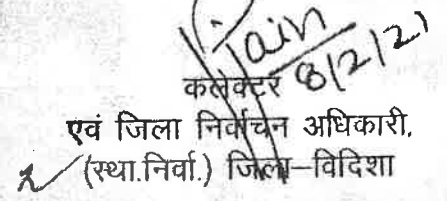 Jain
8/2/21
कलेक्टर
एवं जिला निर्वाचन अधिकारी,
(स्था.निर्वा.) जिला-विदिशा